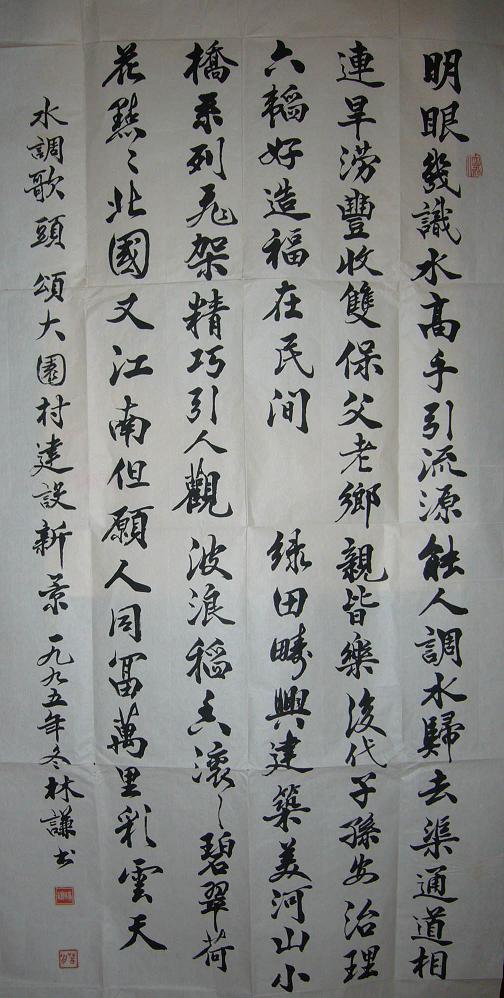 明眼幾識水高手引流源能人調水歸去渠通道相
連旱澇豐收雙保父老鄉親皆樂後代子孫安治理
六韬好造福在民间 绿田畴興建築美河山小
橋系列飛架精巧引人觀波浪稻香滚々碧翠荷
花點々北國又江南但願人同富萬里彩雲天
水調歌頭 頌大園村建設新景 一九九五年冬林謙书